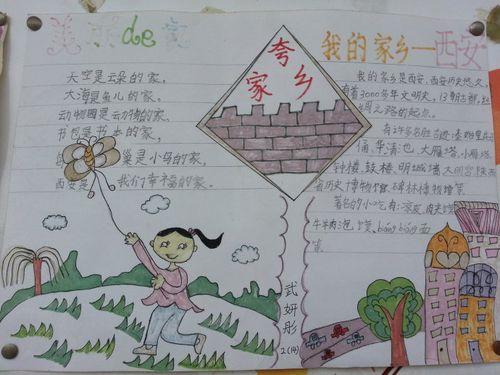 美丽de家
天空是云朵的家。
大海是鱼儿的家。
动物园是动物的家。
书包是书本的家。
巢是小鸟的家。
西安是我们幸福的家。
夸家乡
我的家乡—西安
我的家乡是西安,西安历史悠久,
有着3000多年文明史,13朝古都,丝
绸之路的起点。
有许多名胜古迹:秦始皇兵马
俑、华清池、大雁塔、小雁塔、
钟楼、鼓楼、明城墙、大明宫、陕西
省历史博物馆、碑林博物馆等。
著名的小吃有:凉皮、肉夹馍、
牛羊肉泡馍、biángbiáng面
等。
武妍彤
2(14)